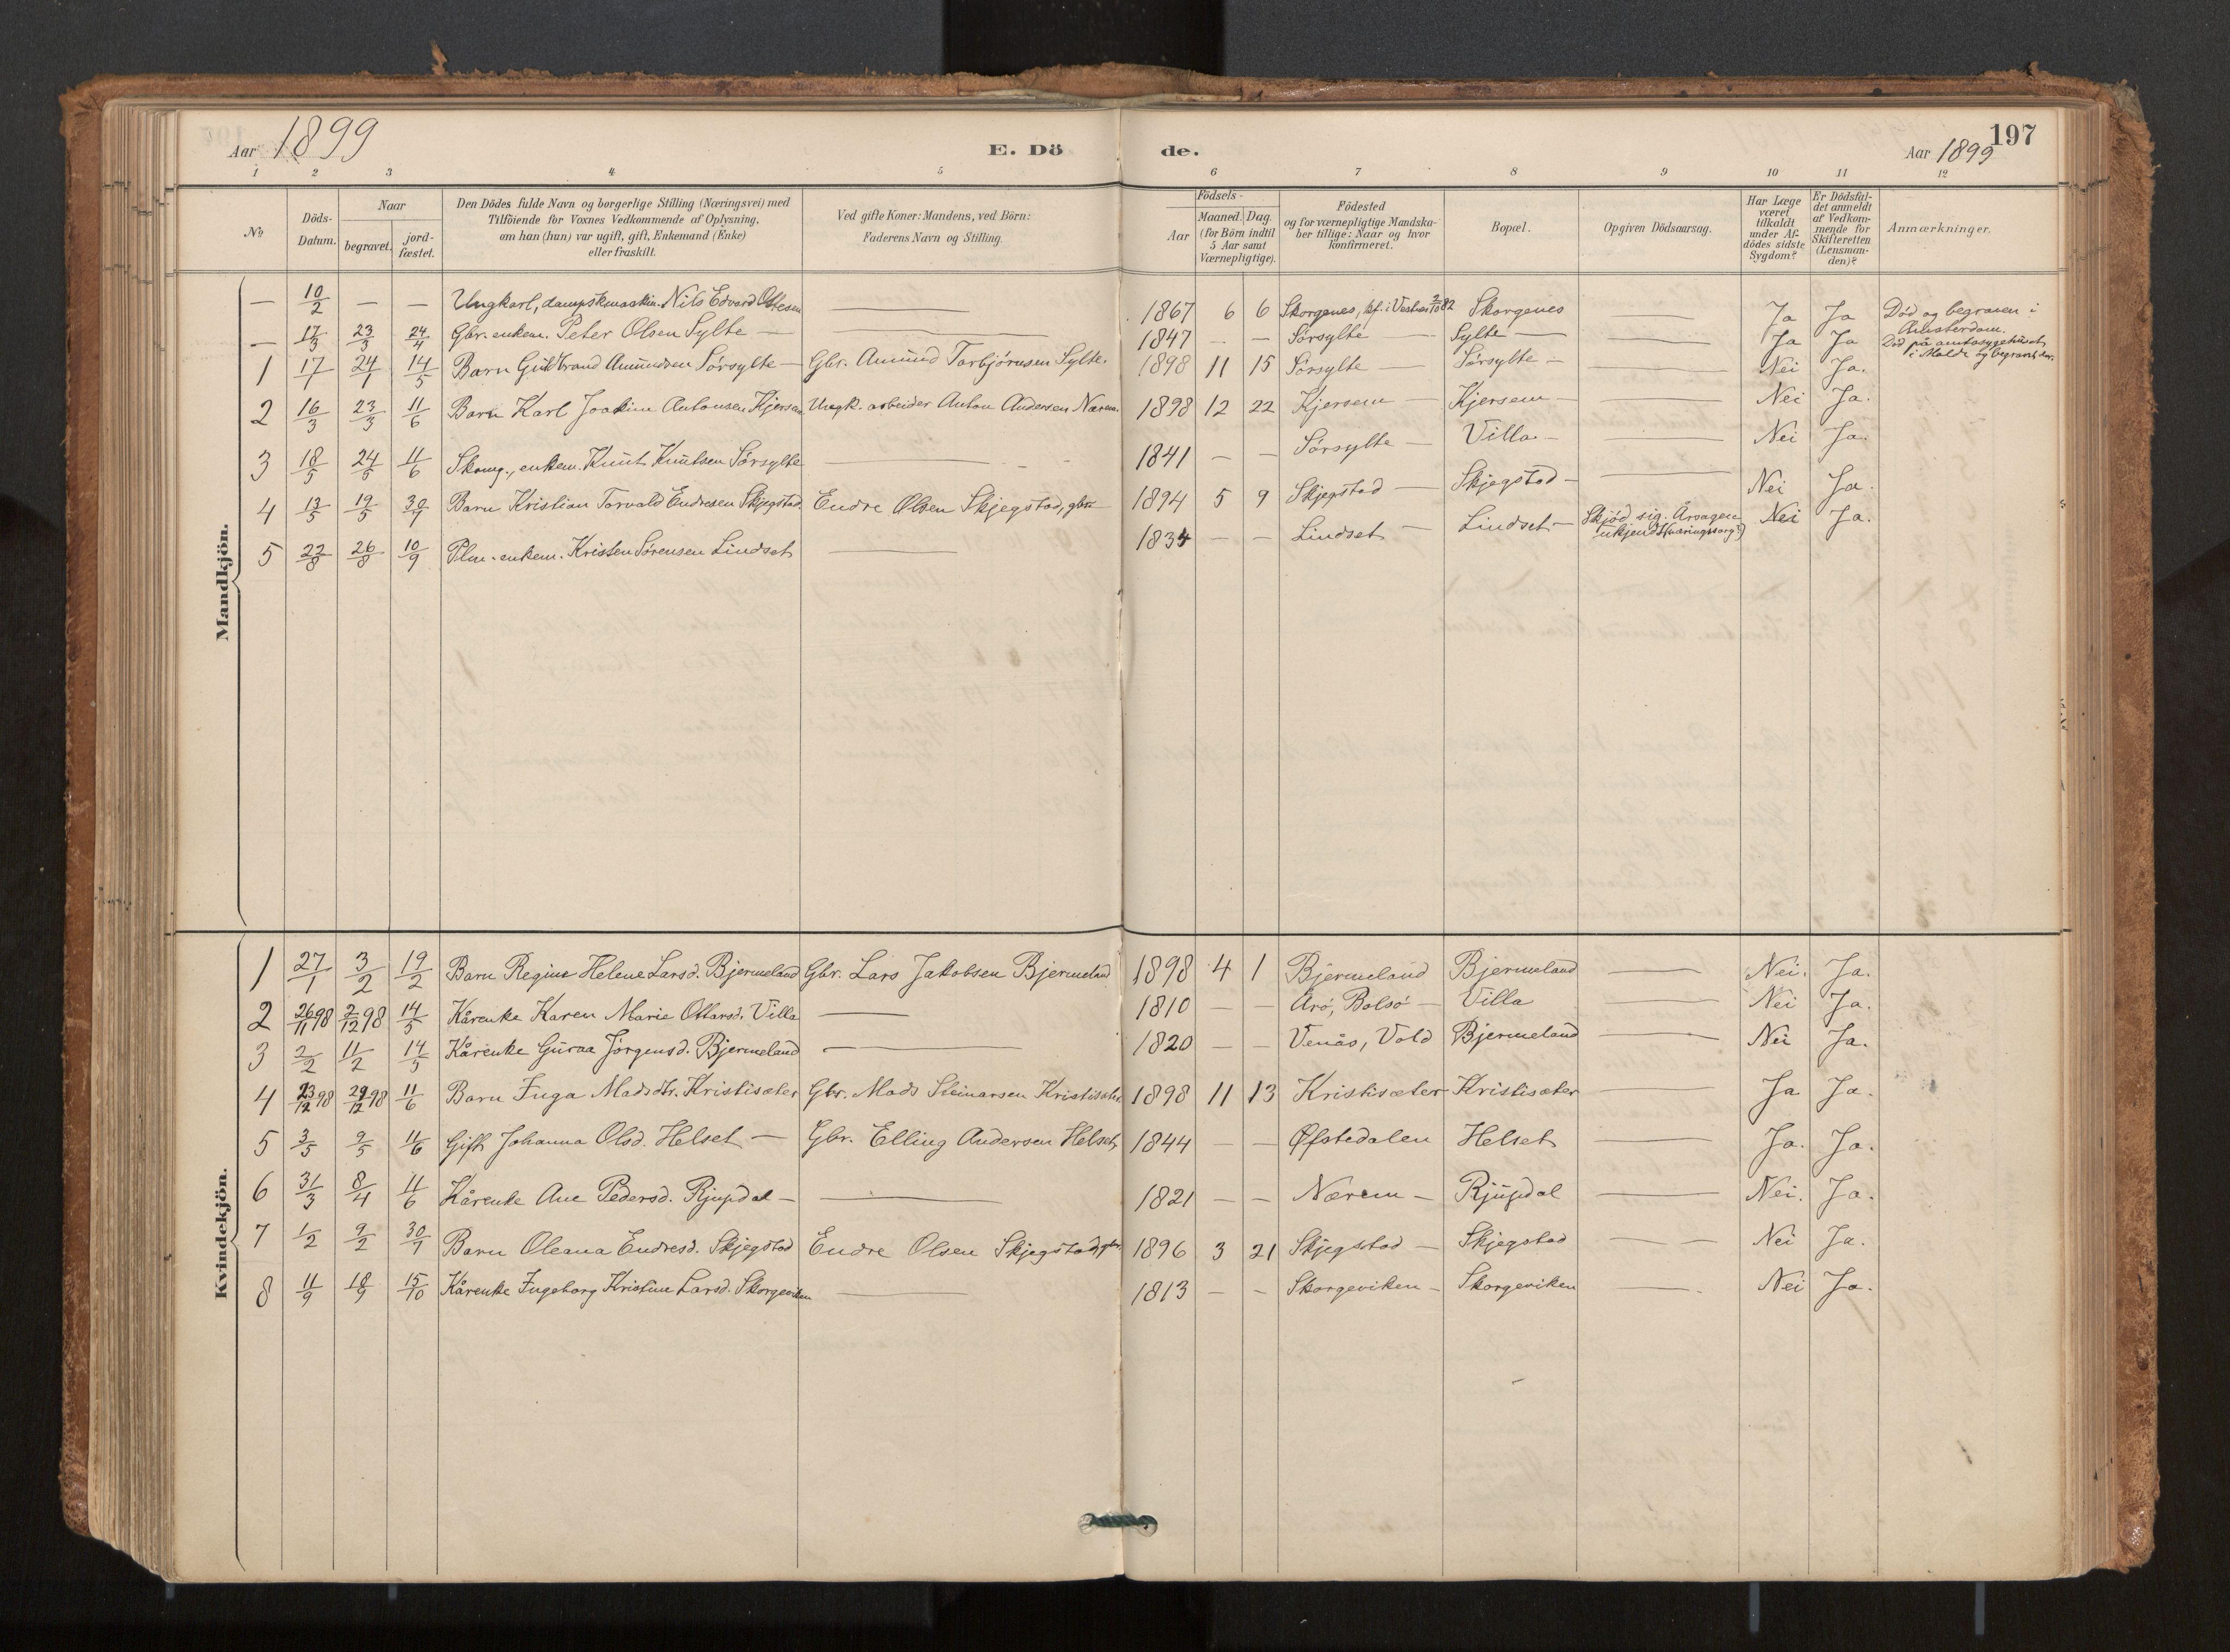 Aar 1899 E. Dö de. Aar 1899 197
1 2 3 4 5 6 7 8 9 10 11 12
No Döds-Datum. Naar begravet. jord-fæstet. Den Dödes fulde Navn og borgerlige Stilling (Næringsvei) med Tilföiende for Voxnes Vedkommende af Oplysning, om han (hun) var ugift, gift, Enkemand (Enke) eller fraskilt. Ved gifte Koner: Mandens, ved Börn: Faderens Navn og Stilling. Födsels- Aar Maaned. Dag. (for Börn indtil 5 Aar samt Værnepligtige). Födested og for værnepligtige Mandska-ber tillige: Naar og hvor konfirmeret. Bopæl. Opgiven Dödsaarsag. Har Læge været tilkaldt under Af-dödes sidste Sygdom? Er Dödsfal-det anmeldt af Vedkom-mende for Skifteretten (Lensman-den)? Anmærkninger.
Mandkjön.
— 10/2 — — Ungkarl, dampskmaskin. Nils Edvard Ottesen — 1867 6 6 Skorgenes, kf. i Vestnes 2/10 82 Skorgenes — Ja Ja Död og begraven i Amsterdam.
— 17/3 23/3 24/4 Gbr. enkem. Peter Olsen Sylte — — 1847 — — Sörsylte — Sylte — — Ja Ja Död på amtssygehuset i Molde og begravet der.
1 17/1 24/1 14/5 Barn Guldbrand Amundsen Sörsylte — Gbr. Amund Torbjörnsen Sylte. 1898 11 15 Sörsylte — Sörsylte — — Nei Ja.
2 16/3 23/3 11/6 Barn Karl Joakim Antonsen Kjersem Ungk. arbeider Anton Andersen Nærem. 1898 12 22 Kjersem — Kjersem — — Nei Ja.
3 18/5 24/5 11/6 Skomg., enkem. Knut Knutsen Sörsylte — 1841 — — Sörsylte — Villa — — Nei Ja.
4 13/5 19/5 30/7 Barn Kristian Torvald Endresen Skjegstad. Endre Olsen Skjegstad, gbr. 1894 5 9 Skjegstad — Skjegstad — — Nei Ja.
5 22/8 26/8 10/9 Plm. enkem. Kristen Sörensen Lindset — 1834 — — Lindset — Lindset — Skjöd sig. Årsagen ukjendt (næringssorg?) Nei Ja.
Kvindekjön.
1 27/1 3/2 19/2 Barn Regine Helene Larsd. Bjermeland Gbr. Lars Jakobsen Bjermeland 1898 4 1 Bjermeland Bjermeland — Nei. Ja.
2 26/11 98 2/12 98 14/5 Kårenke Karen Marie Ottarsd. Villa — 1810 — — Årö, Bolsö — Villa — Nei Ja.
3 2/2 11/2 14/5 Kårenke Guraa Jörgensd. Bjermeland — 1820 — — Venås, Vold Bjermeland — Nei Ja.
4 23/12 98 29/12 98 11/6 Barn Inga Madsdtr. Kristisæter Gbr. Mads Steinarsen Kristisæter 1898 11 13 Kristisæter — Kristisæter — Ja Ja.
5 3/5 9/5 11/6 Gift Johanna Olsd. Helset — Gbr. Elling Andersen Helset 1844 — Öfstedalen Helset — Ja. Ja.
6 31/3 8/4 11/6 Kårenke Ane Pedersd. Rjupdal — — 1821 — — Nærem — Rjupdal — Nei. Ja.
7 1/2 9/2 30/7 Barn Oleana Endresd. Skjegstad Endre Olsen Skjegstad, gbr. 1896 3 21 Skjegstad — Skjegstad — — Nei Ja.
8 11/9 18/9 15/10 Kårenke Ingeborg Kristine Larsd. Skorgeviken — 1813 — — Skorgeviken — Skorgeviken — Nei Ja.